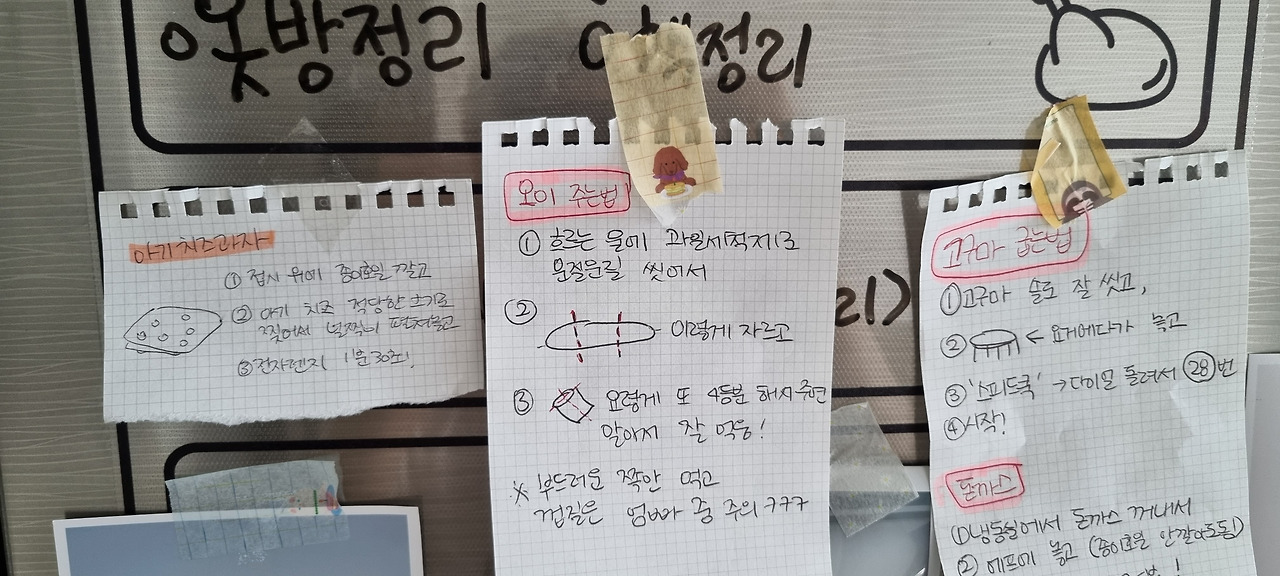 옷방정리
정리
리)
아기치즈과자
① 접시 위에 종이호일 깔고
② 아기 치즈 적당한 크기로
찢어서 널찍이 펼쳐놓고
③ 전자렌지 1분 30초!
오이 주는법
① 흐르는 물에 과일세척제로
문질문질 씻어서
②
이렇게 자르고
③ 요렇게 또 4등분 해서 주면
알아서 잘 먹음!
※ 부드러운 쪽만 먹고
껍질은 엄빠 줌 주의 ㅋㅋㅋ
고구마 굽는법
① 고구마 솔로 잘 씻고,
② ← 요거에다가 놓고
③ '스피드쿡' → 다이얼 돌려서 28번
④ 시작!
돈까스
① 냉동실에서 돈까스 꺼내서
② 에프에 놓고 (종이호일 안깔아도됨)